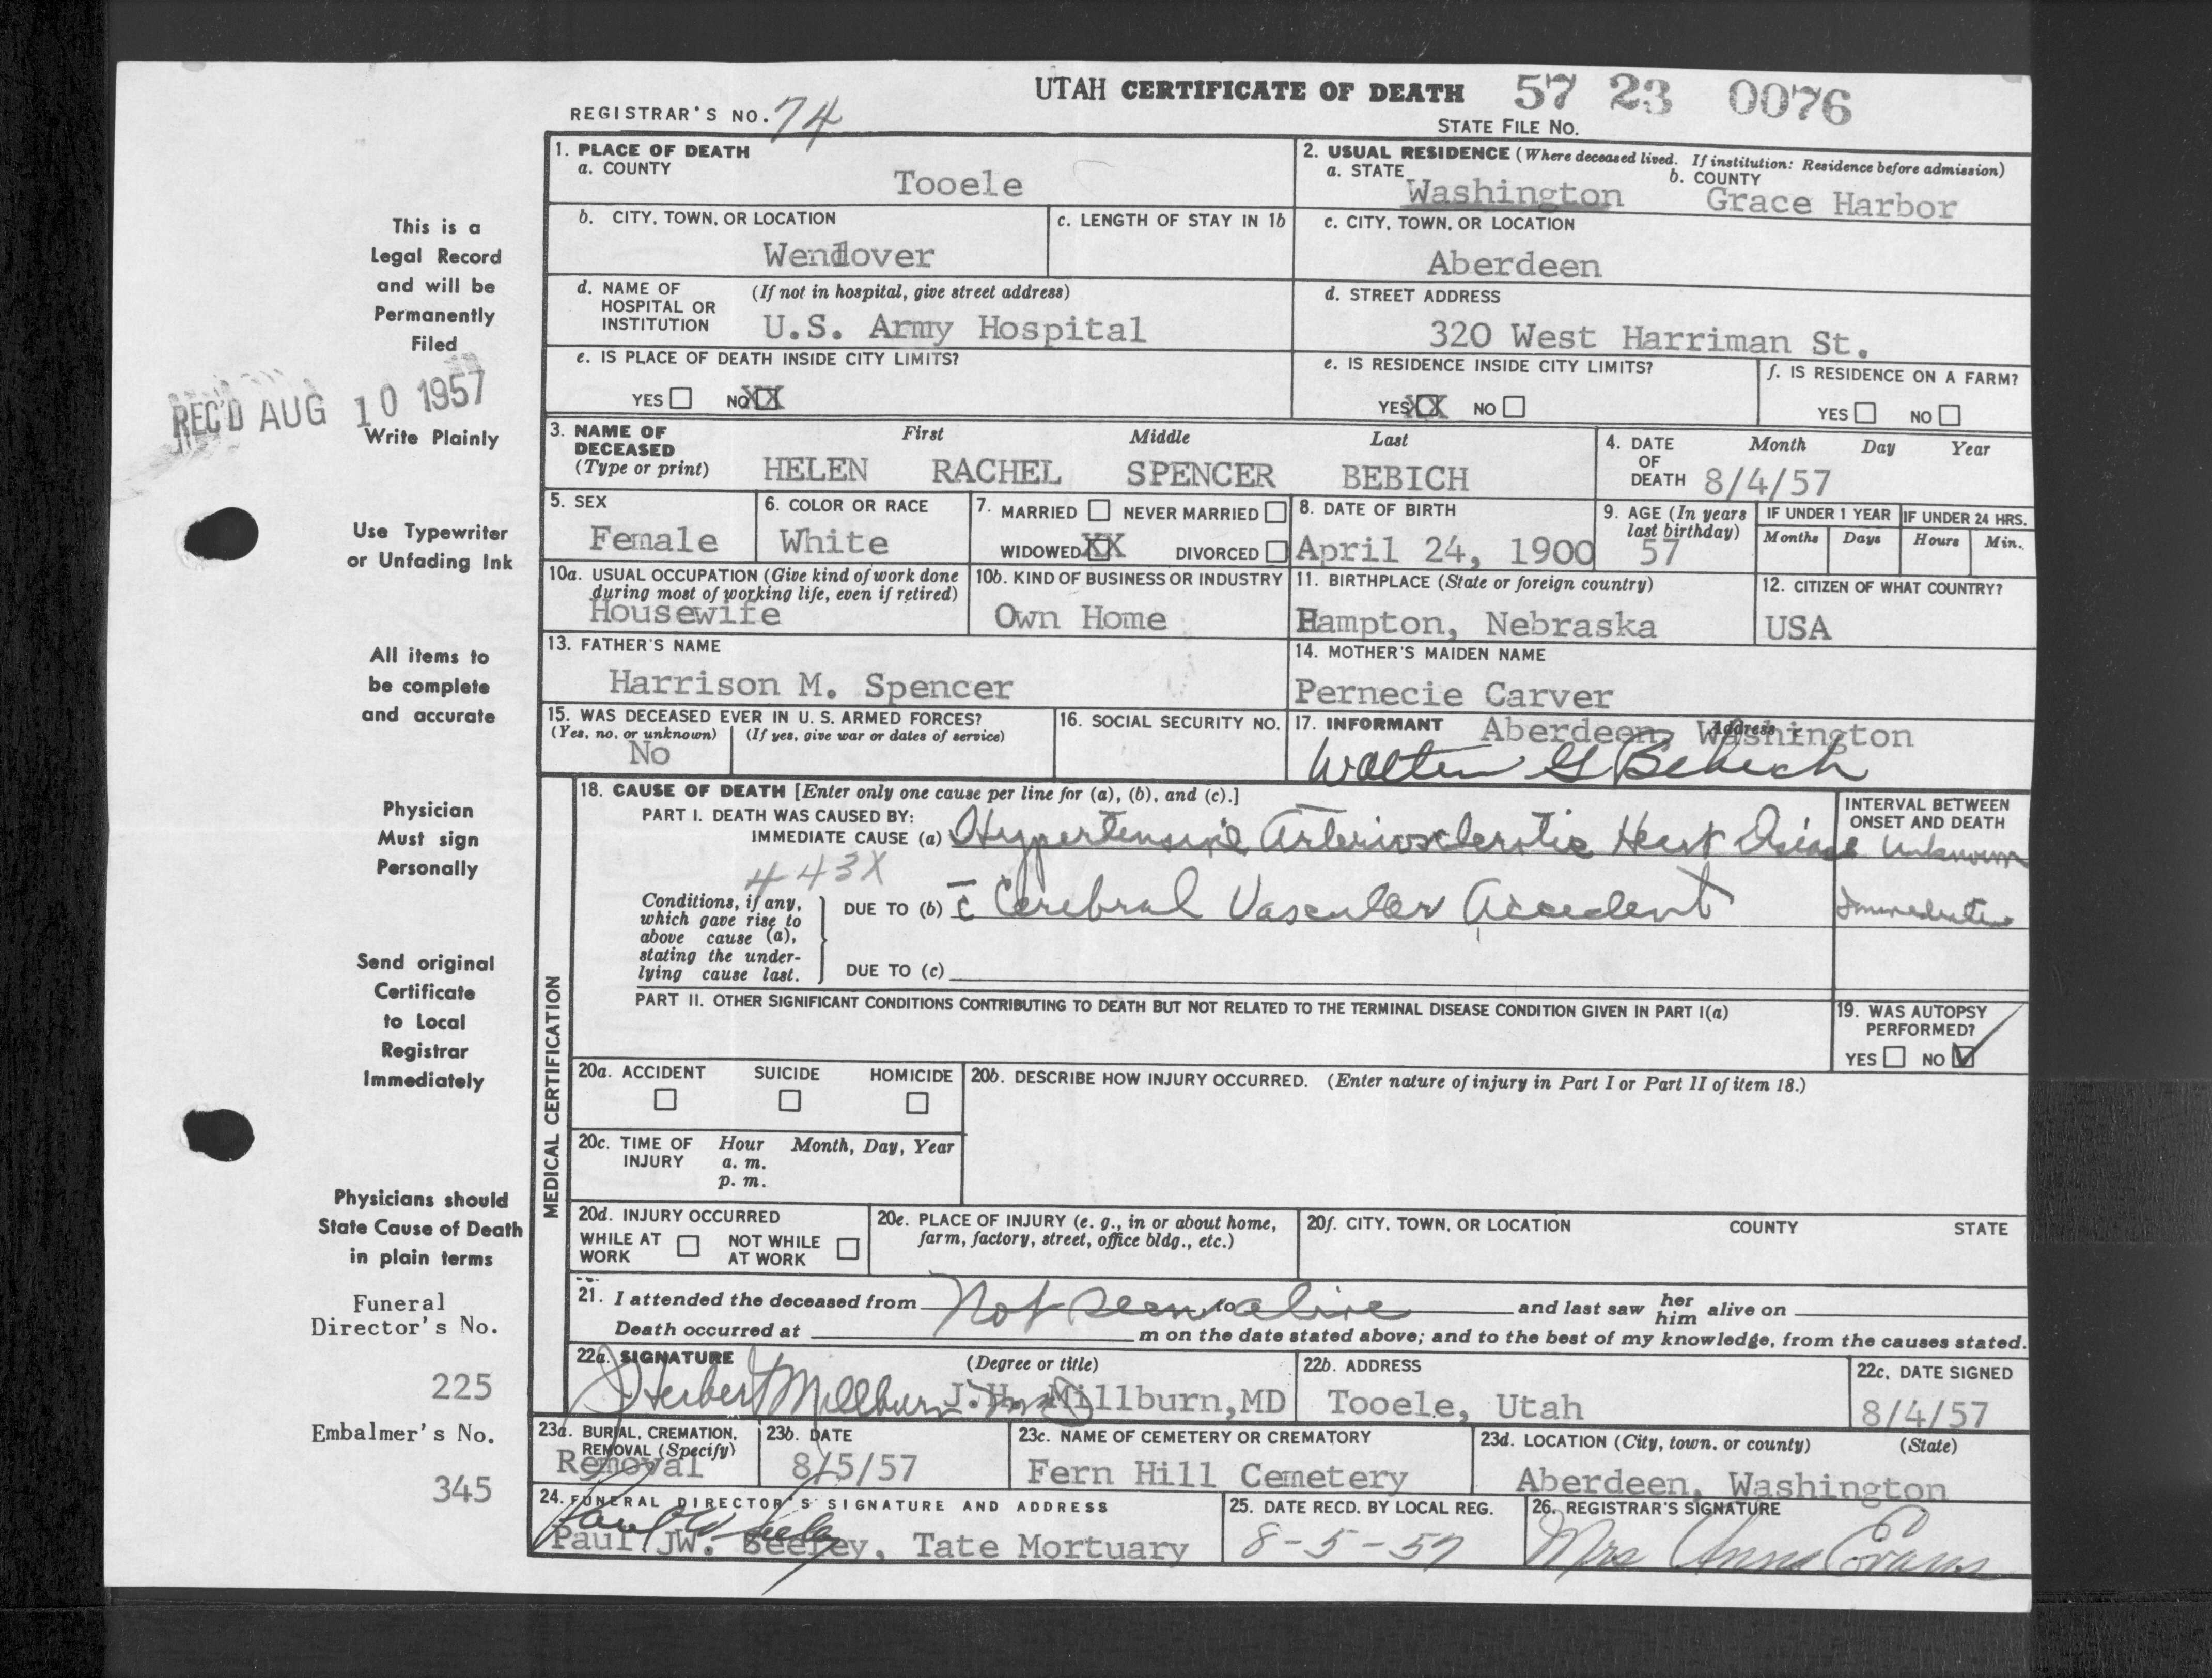 UTAH CERTIFICATE OF DEATH 57 23 0076
REGISTRAR'S NO. 74
STATE FILE NO.
1. PLACE OF DEATH
a. COUNTY
Tooele
2. USUAL RESIDENCE (Where deceased lived. If institution: Residence before admission)
a. STATE
Washington
b. COUNTY
Grace Harbor
b. CITY, TOWN, OR LOCATION
Wendover
c. LENGTH OF STAY IN 1b
c. CITY, TOWN, OR LOCATION
Aberdeen
d. NAME OF HOSPITAL OR INSTITUTION
(If not in hospital, give street address)
U.S. Army Hospital
d. STREET ADDRESS
320 West Harriman St.
e. IS PLACE OF DEATH INSIDE CITY LIMITS?
YES NO XX
e. IS RESIDENCE INSIDE CITY LIMITS?
YES XX NO
f. IS RESIDENCE ON A FARM?
YES NO
3. NAME OF DECEASED
(Type or print)
First Middle Last
HELEN RACHEL SPENCER BEBICH
4. DATE OF DEATH
Month Day Year
8/4/57
5. SEX
Female
6. COLOR OR RACE
White
7. MARRIED NEVER MARRIED
WIDOWED XX DIVORCED
8. DATE OF BIRTH
April 24, 1900
9. AGE (In years last birthday)
57
IF UNDER 1 YEAR
Months Days
IF UNDER 24 HRS.
Hours Min.
10a. USUAL OCCUPATION (Give kind of work done during most of working life, even if retired)
Housewife
10b. KIND OF BUSINESS OR INDUSTRY
Own Home
11. BIRTHPLACE (State or foreign country)
Hampton, Nebraska
12. CITIZEN OF WHAT COUNTRY?
USA
13. FATHER'S NAME
Harrison M. Spencer
14. MOTHER'S MAIDEN NAME
Pernecie Carver
15. WAS DECEASED EVER IN U. S. ARMED FORCES?
(Yes, no, or unknown) (If yes, give war or dates of service)
No
16. SOCIAL SECURITY NO.
17. INFORMANT Address
Aberdeen, Washington
Walter G Bebich
MEDICAL CERTIFICATION
18. CAUSE OF DEATH [Enter only one cause per line for (a), (b), and (c).]
PART I. DEATH WAS CAUSED BY:
IMMEDIATE CAUSE (a) Hypertensive Arteriosclerotic Heart Disease
INTERVAL BETWEEN ONSET AND DEATH
Unknown
443X
Conditions, if any, which gave rise to above cause (a), stating the underlying cause last.
DUE TO (b) c̄ Cerebral Vascular Accident
Immediate
DUE TO (c)
PART II. OTHER SIGNIFICANT CONDITIONS CONTRIBUTING TO DEATH BUT NOT RELATED TO THE TERMINAL DISEASE CONDITION GIVEN IN PART I(a)
19. WAS AUTOPSY PERFORMED?
YES NO
20a. ACCIDENT SUICIDE HOMICIDE
20b. DESCRIBE HOW INJURY OCCURRED. (Enter nature of injury in Part I or Part II of item 18.)
20c. TIME OF INJURY
Hour Month, Day, Year
a. m.
p. m.
20d. INJURY OCCURRED
WHILE AT WORK NOT WHILE AT WORK
20e. PLACE OF INJURY (e. g., in or about home, farm, factory, street, office bldg., etc.)
20f. CITY, TOWN, OR LOCATION COUNTY STATE
21. I attended the deceased from Not seen to alive and last saw her him alive on
Death occurred at m on the date stated above; and to the best of my knowledge, from the causes stated.
22a. SIGNATURE (Degree or title)
J Herbert Millburn
J.H. Millburn, MD
22b. ADDRESS
Tooele, Utah
22c. DATE SIGNED
8/4/57
23a. BURIAL, CREMATION, REMOVAL (Specify)
Removal
23b. DATE
8/5/57
23c. NAME OF CEMETERY OR CREMATORY
Fern Hill Cemetery
23d. LOCATION (City, town, or county) (State)
Aberdeen, Washington
24. FUNERAL DIRECTOR'S SIGNATURE AND ADDRESS
Paul W. Seeley, Tate Mortuary
25. DATE RECD. BY LOCAL REG.
8-5-57
26. REGISTRAR'S SIGNATURE
Mrs Anna Evans
This is a
Legal Record
and will be
Permanently
Filed
REC'D AUG 10 1957
Write Plainly
Use Typewriter
or Unfading Ink
All items to
be complete
and accurate
Physician
Must sign
Personally
Send original
Certificate
to Local
Registrar
Immediately
Physicians should
State Cause of Death
in plain terms
Funeral
Director's No.
225
Embalmer's No.
345